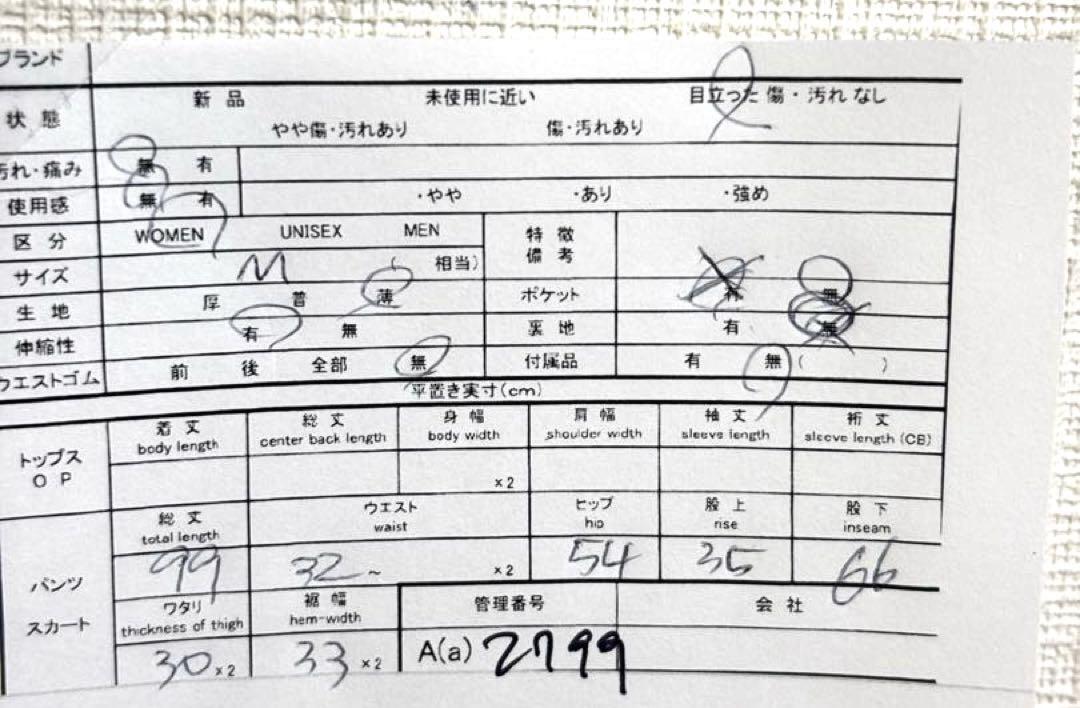 ブランド
状態 新品 未使用に近い 目立った傷・汚れなし
やや傷・汚れあり 傷・汚れあり
汚れ・痛み 無 有
使用感 無 有 ・やや ・あり ・強め
区分 WOMEN UNISEX MEN 特徴備考
サイズ M (相当)
生地 厚 普 薄 ポケット 有 無
伸縮性 有 無 裏地 有 無
ウエストゴム 前 後 全部 無 付属品 有 無 ( )
平置き実寸(cm)
トップス OP
着丈 総丈 身幅 肩幅 袖丈 裄丈
body length center back length body width shoulder width sleeve length sleeve length (CB)
×2
パンツ スカート
総丈 ウエスト ヒップ 股上 股下
total length waist hip rise inseam
99 32~ ×2 54 35 66
ワタリ 裾幅 管理番号 会社
thickness of thigh hem-width
30×2 33×2 A(a) 2799